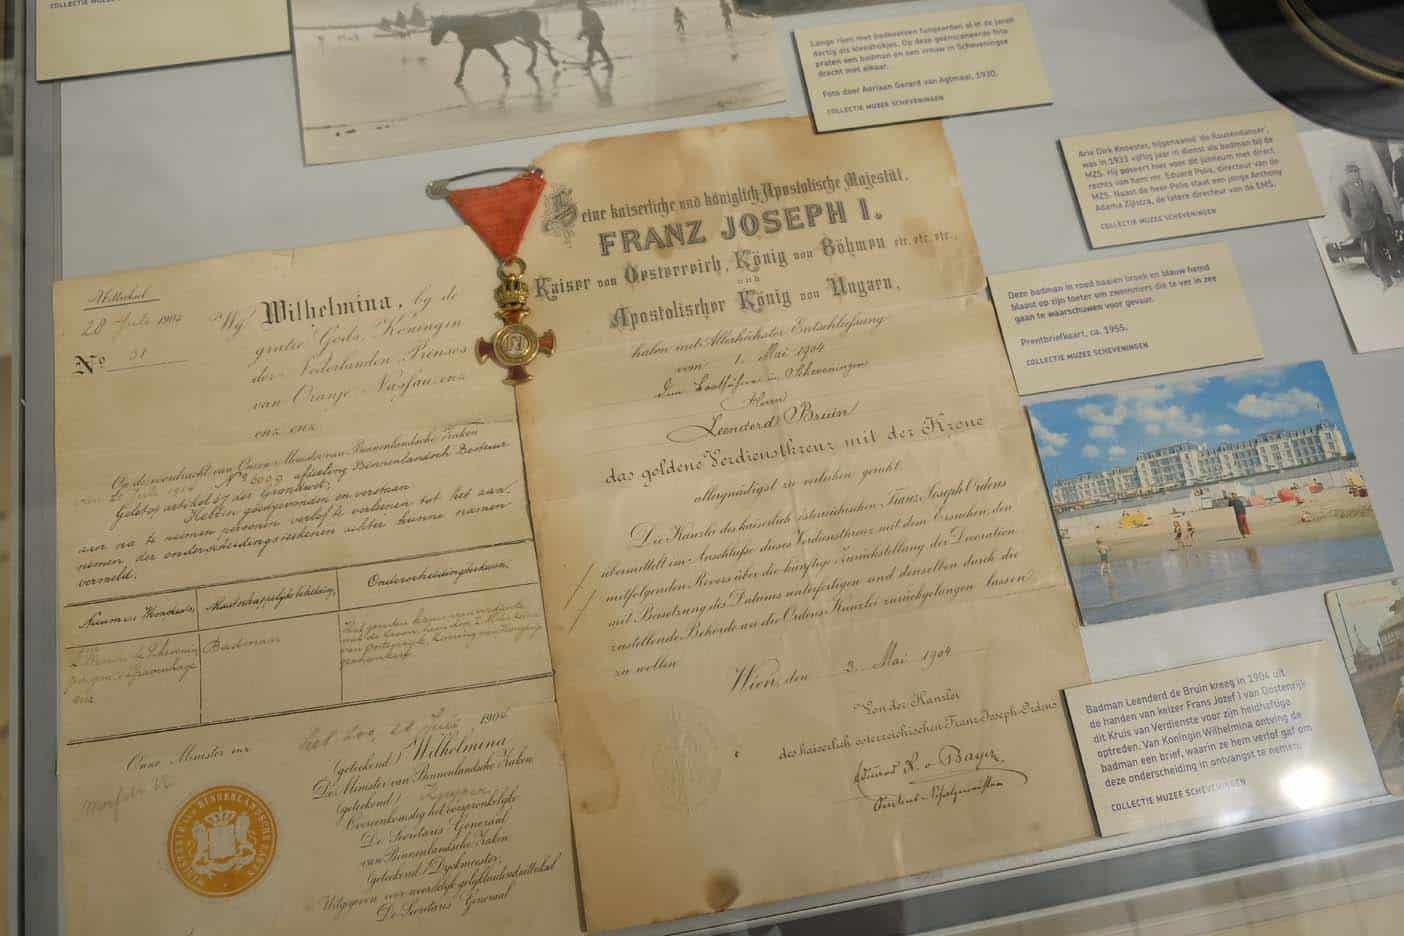 COLLECTIE MUZEE
Lange rijen met badkoetsen fungeerden al in de jaren
dertig als kleedhokjes. Op deze geënsceneerde foto
praten een badman en een vrouw in Scheveningse
dracht met elkaar.
Foto door Adriaan Gerard van Agtmaal, 1930.
COLLECTIE MUZEE SCHEVENINGEN
Arie Dirk Knoester, bijgenaamd 'de Rouwendanser',
was in 1933 vijftig jaar in dienst als badman bij de
MZS. Hij poseert hier voor dit jubileum met direct
rechts van hem mr. Eduard Polis, directeur van de
MZS. Naast de heer Polis staat een jonge Anthony
Adama Zijlstra, de latere directeur van de EMS.
COLLECTIE MUZEE SCHEVENINGEN
Deze badman in rood baaien broek en blauw hemd
blaast op zijn toeter om zwemmers die te ver in zee
gaan te waarschuwen voor gevaar.
Prentbriefkaart, ca. 1955.
COLLECTIE MUZEE SCHEVENINGEN
Badman Leenderd de Bruin kreeg in 1904 uit
de handen van keizer Frans Jozef I van Oostenrijk
dit Kruis van Verdienste voor zijn heldhaftige
optreden. Van Koningin Wilhelmina ontving de
badman een brief, waarin ze hem verlof gaf om
deze onderscheiding in ontvangst te nemen.
COLLECTIE MUZEE SCHEVENINGEN
Afschrift
28 Juli 1904
No 31
Wij Wilhelmina, bij de
gratie Gods, Koningin
der Nederlanden, Prinses
van Oranje-Nassau, enz.
enz. enz.
Op de voordracht van Onzen Minister van Binnenlandsche Zaken
van 26 Juli 1904 No 6009 afdeeling Binnenlandsch Bestuur
Gelet op artikel 67 der Grondwet;
Hebben goedgevonden en verstaan
aan na te noemen personen verlof te verleenen tot het aan-
nemen der onderscheidingsteekenen achter hunne namen
vermeld.
Naam en Woonplaats, Maatschappelijke betrekking, Onderscheidingsteeken.
Badman
Het gouden kruis van verdienste
met de kroon, hem den 2 Mei
Onze Minister van
Het Loo, den 28 Juli 1904
(geteekend) Wilhelmina
De Minister van Binnenlandsche Zaken
(geteekend) Kuyper
Overeenkomstig het oorspronkelijke
De Secretaris-Generaal
van Binnenlandsche Zaken
(geteekend) Dyckmeester
Uitgegeven voor woordelijk gelijkluidend uittreksel
De Secretaris Generaal
MINISTERIE VAN BINNENLANDSCHE ZAKEN
Seine kaiserliche und königlich Apostolische Majestät,
FRANZ JOSEPH I.
Kaiser von Oesterreich, König von Böhmen etc. etc. etc.,
und
Apostolischer König von Ungarn,
haben mit Allerhöchster Entschließung
vom 1. Mai 1904
dem Bootführer in Scheveningen
Herrn
Leenderd Bruin
das goldene Verdienstkreuz mit der Krone
allergnädigst zu verleihen geruht.
Die Kanzlei des kaiserlich österreichischen Franz Joseph Ordens
übermittelt im Anschlusse dieses Verdienstkreuz mit dem Ersuchen, den
mitfolgenden Revers über die künftige Zurückstellung der Decoration
mit Beisetzung des Datums unterfertigen und denselben durch die
zustellende Behörde an die Ordens Kanzlei zurückgelangen lassen
zu wollen.
Wien, den 3. Mai 1904
Von der Kanzlei
des kaiserlich österreichischen Franz Joseph-Ordens